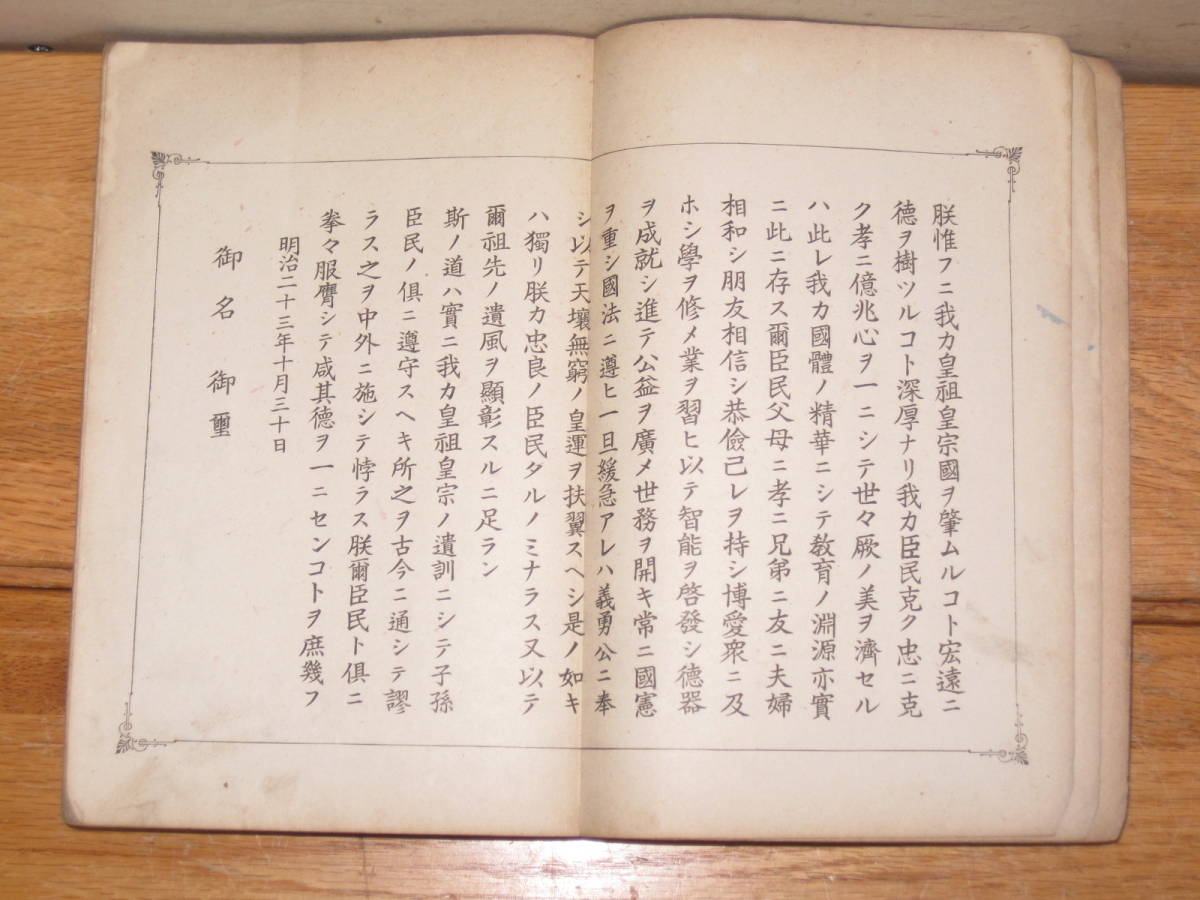 朕惟フニ我カ皇祖皇宗國ヲ肇ムルコト宏遠ニ
德ヲ樹ツルコト深厚ナリ我カ臣民克ク忠ニ克
ク孝ニ億兆心ヲ一ニシテ世々厥ノ美ヲ濟セル
ハ此レ我カ國體ノ精華ニシテ敎育ノ淵源亦實
ニ此ニ存ス爾臣民父母ニ孝ニ兄弟ニ友ニ夫婦
相和シ朋友相信シ恭儉己レヲ持シ博愛衆ニ及
ホシ學ヲ修メ業ヲ習ヒ以テ智能ヲ啓發シ德器
ヲ成就シ進テ公益ヲ廣メ世務ヲ開キ常ニ國憲
ヲ重シ國法ニ遵ヒ一旦緩急アレハ義勇公ニ奉
シ以テ天壤無窮ノ皇運ヲ扶翼スヘシ是ノ如キ
ハ獨リ朕カ忠良ノ臣民タルノミナラス又以テ
爾祖先ノ遺風ヲ顯彰スルニ足ラン
斯ノ道ハ實ニ我カ皇祖皇宗ノ遺訓ニシテ子孫
臣民ノ俱ニ遵守スヘキ所之ヲ古今ニ通シテ謬
ラス之ヲ中外ニ施シテ悖ラス朕爾臣民ト俱ニ
拳々服膺シテ咸其德ヲ一ニセンコトヲ庶幾フ
明治二十三年十月三十日
御名御璽